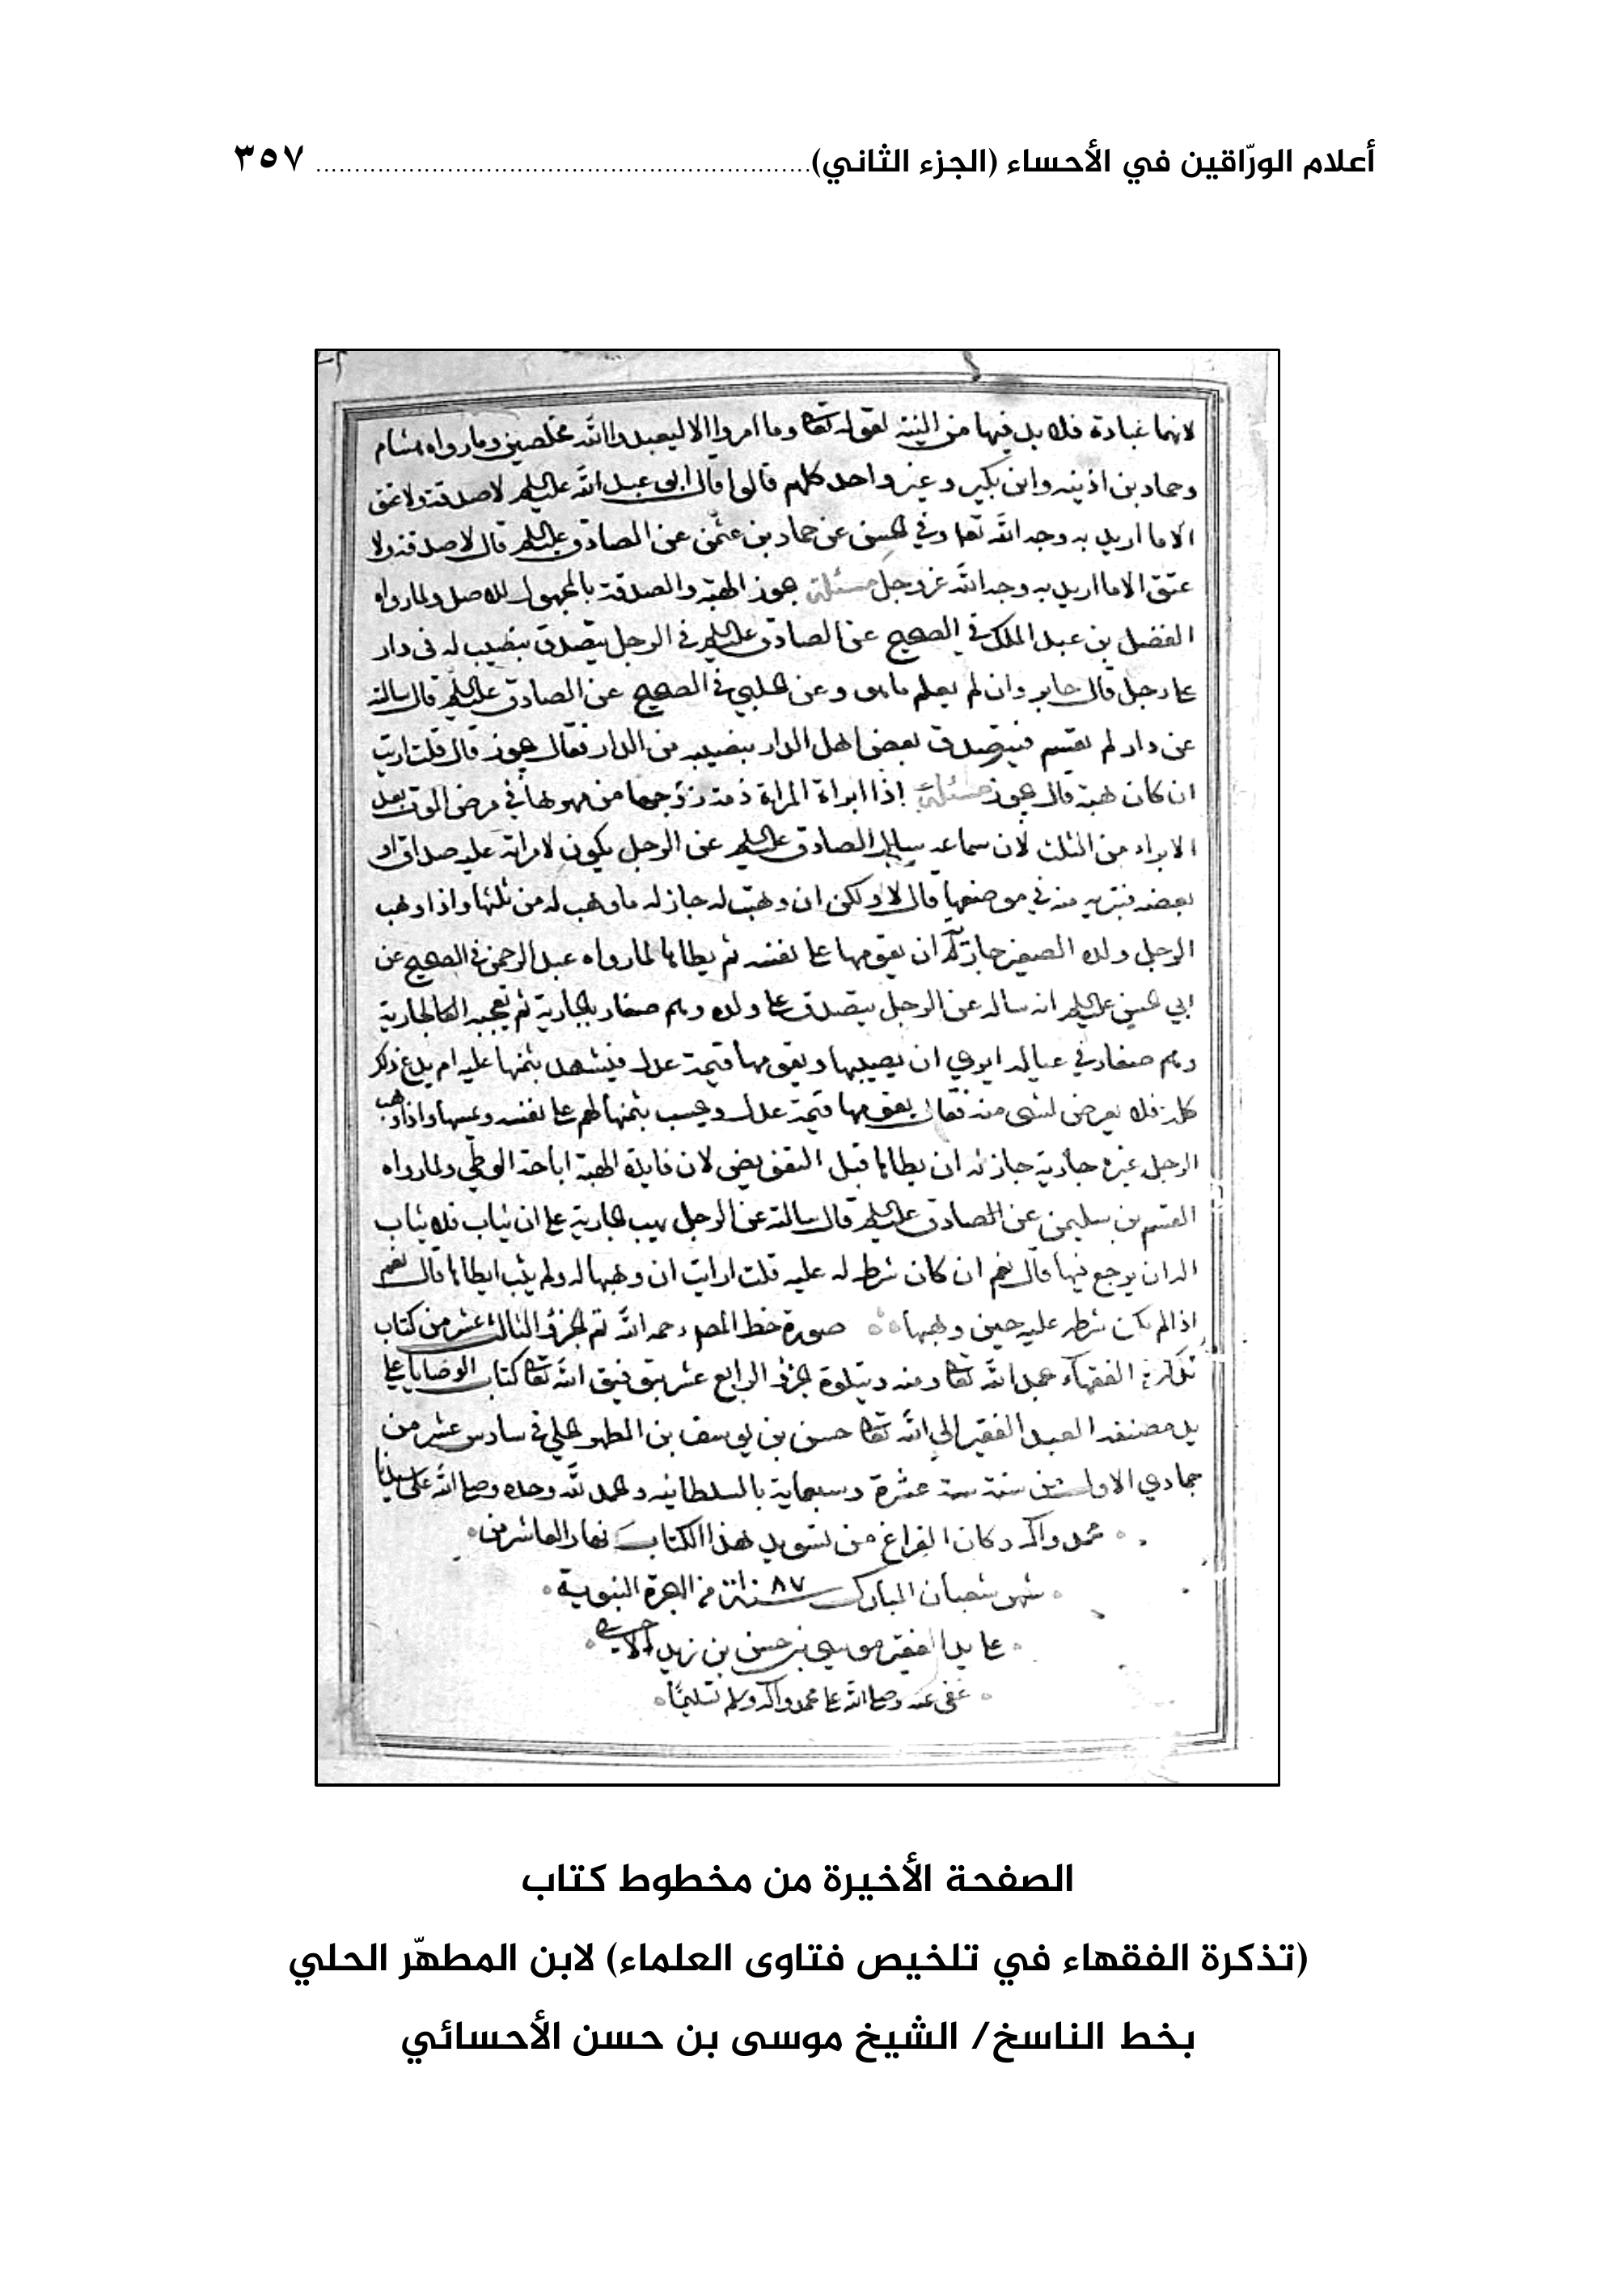 أعلام الورّاقين في الأحساء (الجزء الثاني)............................................................... ٣٥٧
لانها عبادة فلا بد فيها من النية لقوله تعا وما امروا الا ليعبدوا الله مخلصين وما رواه هشام
وحماد بن اذينه وابن بكير وغير واحد كلهم قالوا قال ابو عبد الله عليه السلم لا صدقة ولا عتق
الا ما اريد به وجه الله تعا وفي الحسن عن حماد بن عثمن عن الصادق عليه السلم قال لا صدقة ولا
عتق الا ما اريد به وجه الله عز وجل مسئلة يجوز الهبة والصدقة بالمجهول للاصل ولما رواه
الفضل بن عبد الملك في الصحيح عن الصادق عليه السلم في الرجل يتصدق بنصيب له في دار
على رجل قال جايز وان لم يعلم ما هو وعن الحلبي في الصحيح عن الصادق عليه السلم قال سالته
عن دار لم تقسم فيتصدق بعض اهل الدار بنصيبه من الدار فقال يجوز قال قلت ارايت
ان كان هبة قال يجوز مسئلة اذا ابراة المراة ذمة زوجها من مهرها في مرض الموت بعد
الابراء من الثلث لان سماعة سال الصادق عليه السلم عن الرجل يكون لامراته عليه صداق او
بعضه فتبريه منه في مرضها قال لا ولكن ان وهبت له جاز له ما وهب له من ثلثها واذا وهب
الرجل ولده الصغير جارية ان يقومها على نفسه ثم يطاها لما رواه عبد الرحمن في الصحيح عن
ابي الحسن عليه السلم انه ساله عن الرجل يتصدق على ولده وهم صغار بالجارية ثم تعجبه الجارية
وهم صغار في عياله ايرى ان يصيبها ويقومها قيمة عدل فيشهد بثمنها عليه ام يدع ذلك
كله فلا يعرض لشى منه فقال يقومها قيمة عدل ويحسب بثمنها لهم على نفسه ويمسها واذا وهب
الرجل غيره جارية جاز له ان يطاها قبل التعويض لان فايدة الهبة اباحة الوطي ولما رواه
القسم بن سليمن عن الصادق عليه السلم قال سالته عن الرجل يهب الجارية على ان يثاب فلا يثاب
اله ان يرجع فيها قال نعم ان كان شرط له عليه قلت ارايت ان وهبها له ولم يثبه ايطاها قال نعم
اذا لم يكن شرط عليه حين وهبها صورة خط المصنف رحمه الله تم الجزؤ الثالث عشر من كتاب
تذكرة الفقهاء بحمد الله تعا ومنه ويتلوه الجزؤ الرابع عشر بتوفيق الله تعا كتاب الوصايا على
يد مصنفه العبد الفقير الى الله تعا حسن بن يوسف بن المطهر الحلي في سادس عشر من
جمادي الاولى من سنة ستة عشرة وسبعماية بالسلطانيه والحمد لله وحده وصلى الله على سيدنا
محمد واله وكان الفراغ من تسويد هذا الكتاب نهار العاشر من
شهر شعبان المبارك سنة من الهجرة النبوية
على يد الفقير موسى بن حسن بن زيد الاحسائي
عفى عنه وصلى الله على محمد واله وسلم تسليما
الصفحة الأخيرة من مخطوط كتاب
(تذكرة الفقهاء في تلخيص فتاوى العلماء) لابن المطهّر الحلي
بخط الناسخ/ الشيخ موسى بن حسن الأحسائي